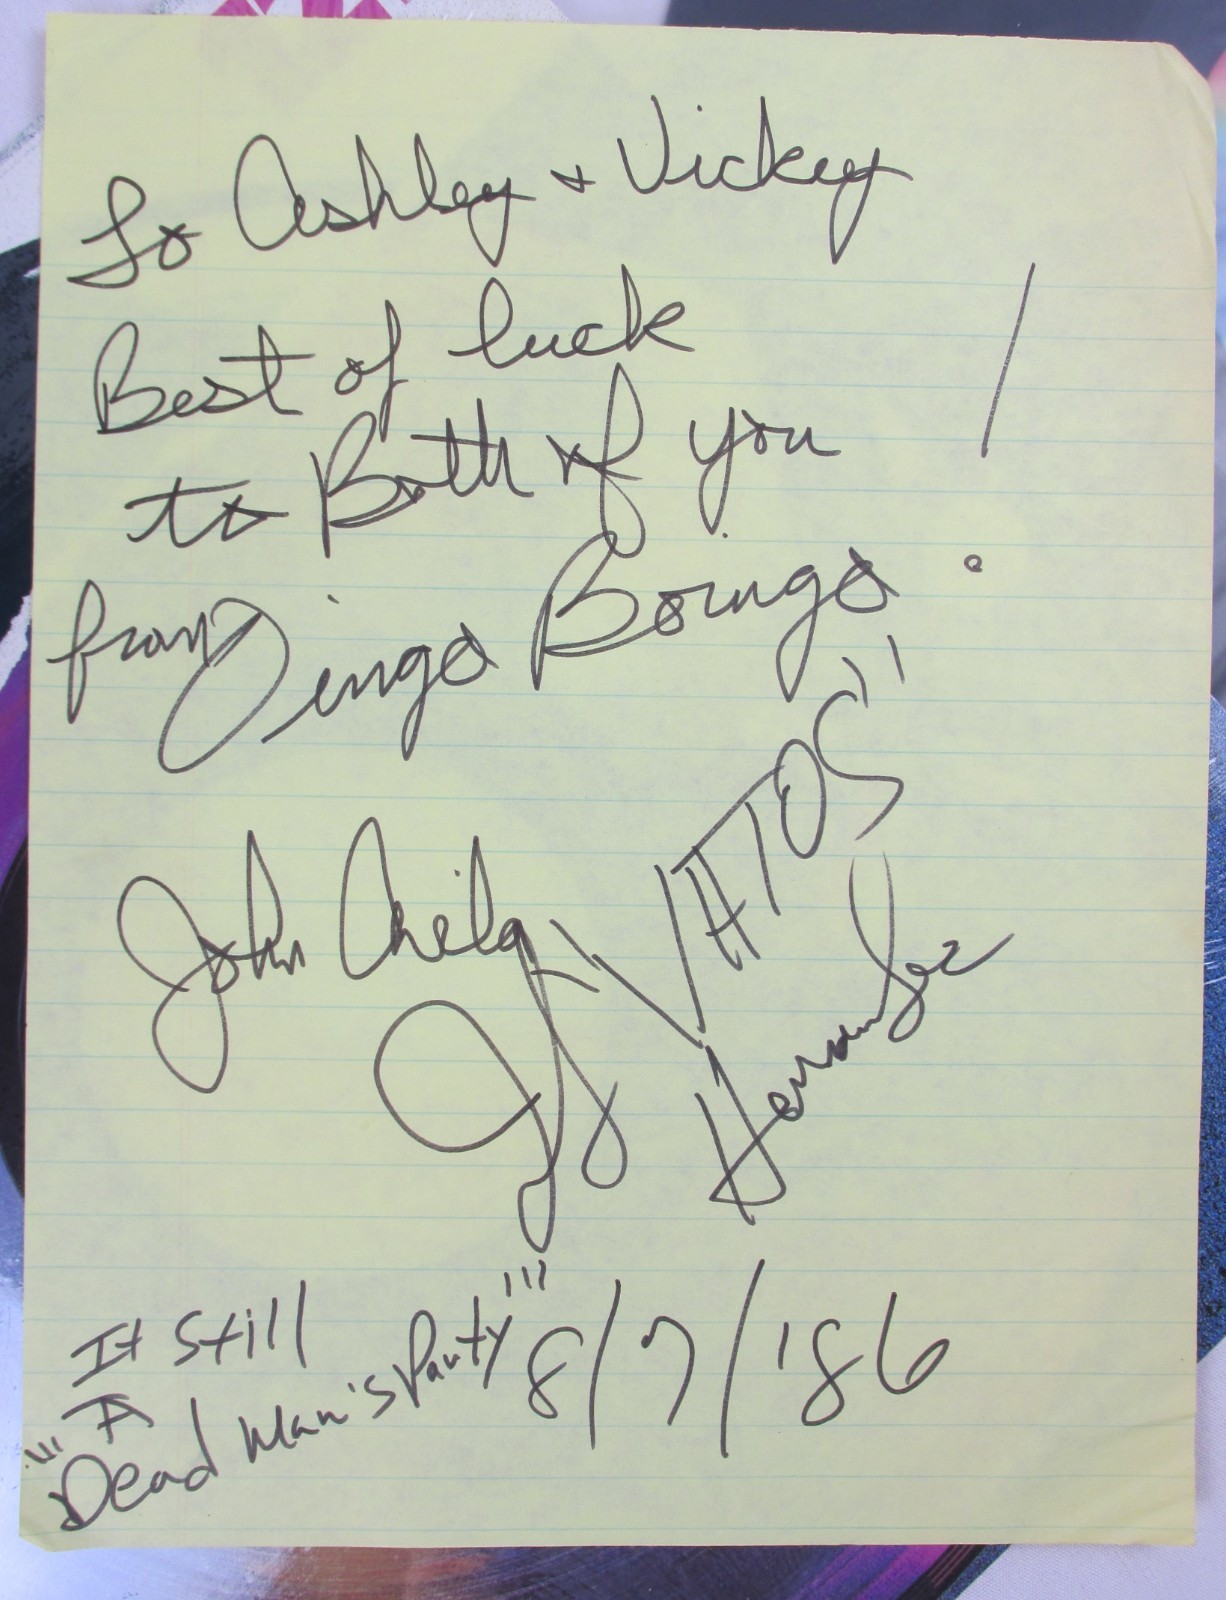 To Ashley + Vickey
Best of luck
to Both of you !
from Oingo Boingo
John Avila
"VATOS"
Hernandez
It Still
A
"Dead Man's Party"
8/7/'86